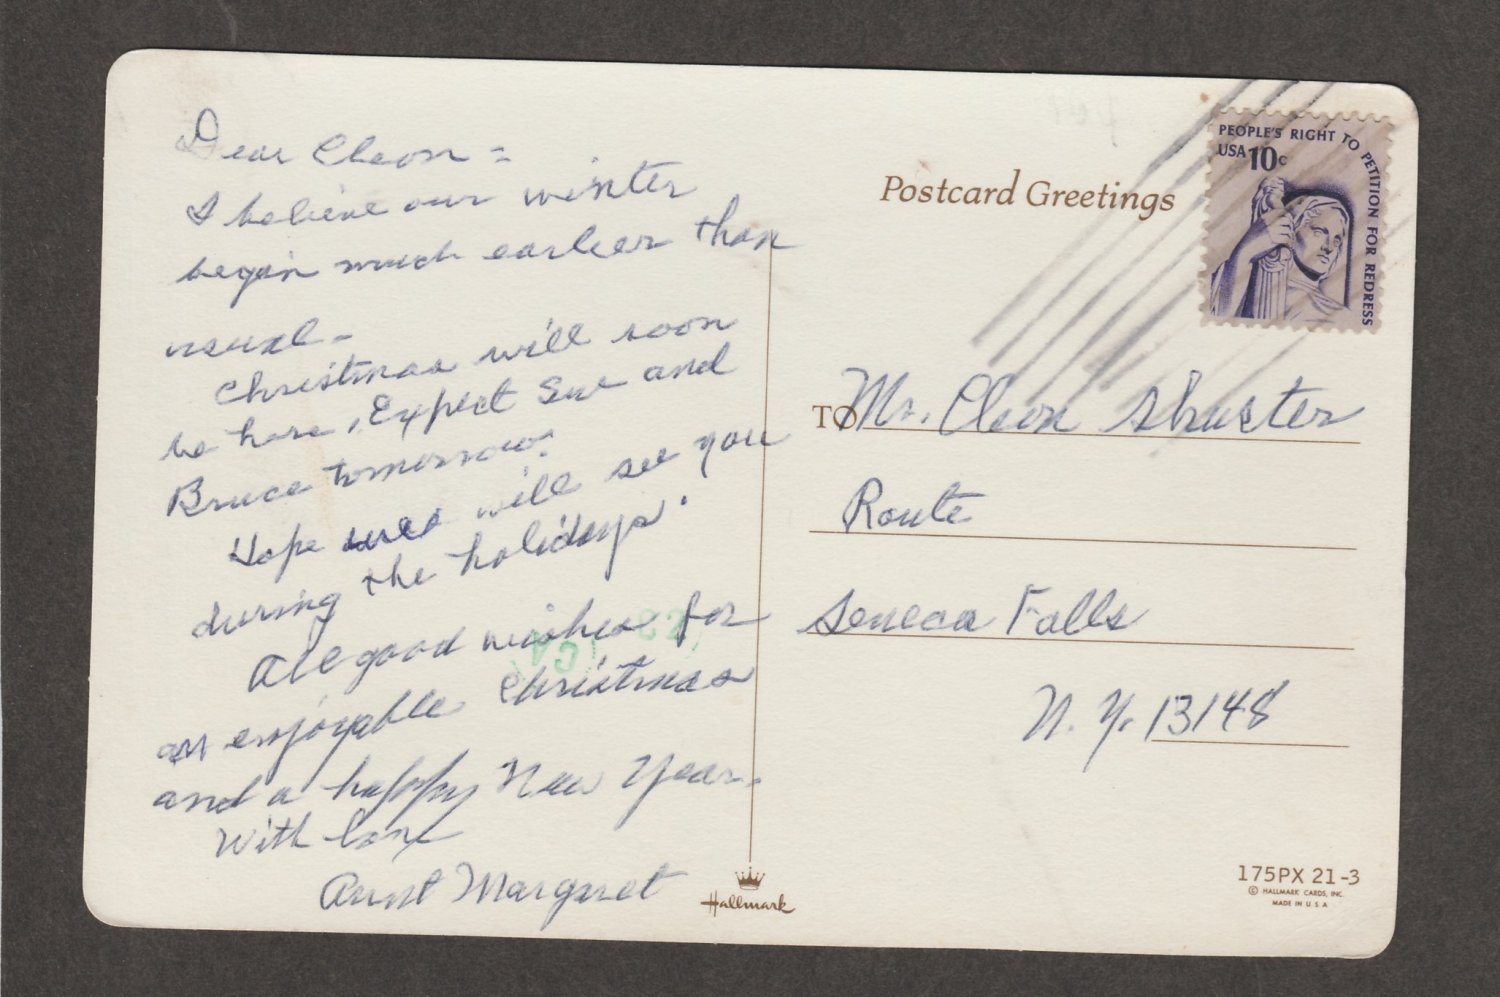 Dear Cleon =
I believe our winter
began much earlier than
usual -
Christmas will soon
be here, Expect Sue and
Bruce tomorrow.
Hope will see you
during the holidays.
All good wishes for
an enjoyable Christmas
and a happy New Year.
With love
Aunt Margaret
Hallmark
Postcard Greetings
PEOPLE'S RIGHT TO PETITION FOR REDRESS
USA 10c
TO Mr. Cleon Shuster
Route
Seneca Falls
N. Y. 13148
175PX 21-3
© HALLMARK CARDS, INC.
MADE IN U.S.A